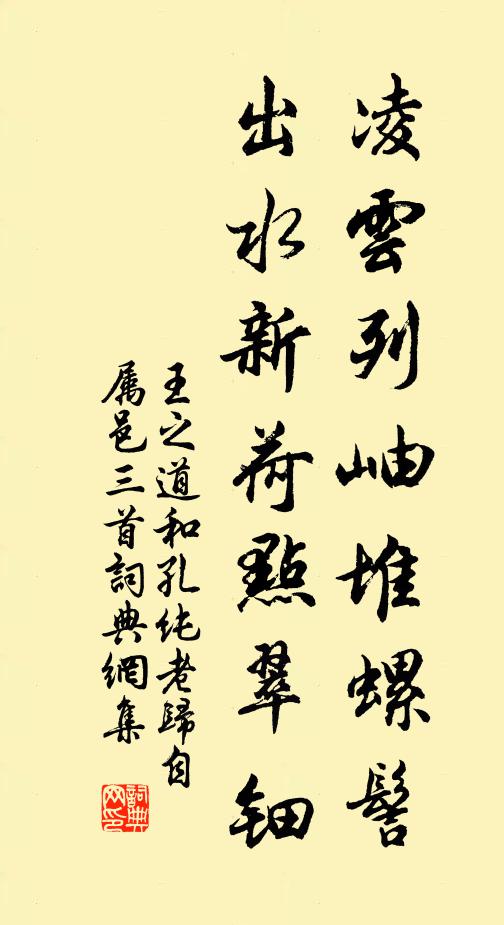 凌雲列岫堆螺髻
出水新荷點翠鈿
王之道和孔純老歸自
属邑三首詞典網集
詞典
网印